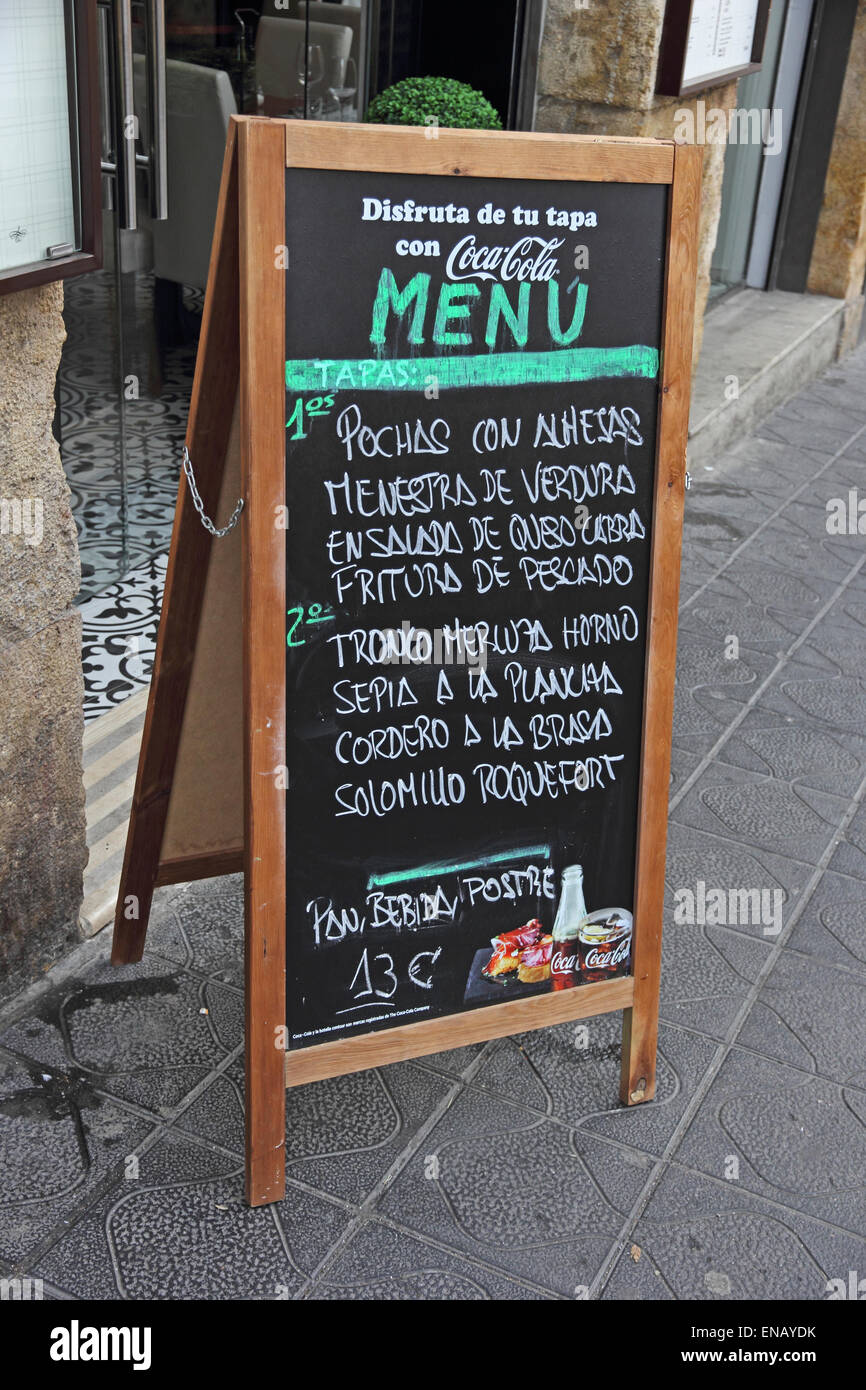 Disfruta de tu tapa
con Coca-Cola
MENÚ
TAPAS:
1os
POCHAS CON ALMEJAS
MENESTRA DE VERDURA
ENSALADA DE QUESO CABRA
FRITURA DE PESCADO
2os
TRONCO MERLUZA HORNO
SEPIA A LA PLANCHA
CORDERO A LA BRASA
SOLOMILLO ROQUEFORT
PAN, BEBIDA, POSTRE
13€
Coca-Cola
Coca-Cola
Coca-Cola y la botella contour son marcas registradas de The Coca-Cola Company
alamy
alamy
Image ID: ENAYDK
www.alamy.com